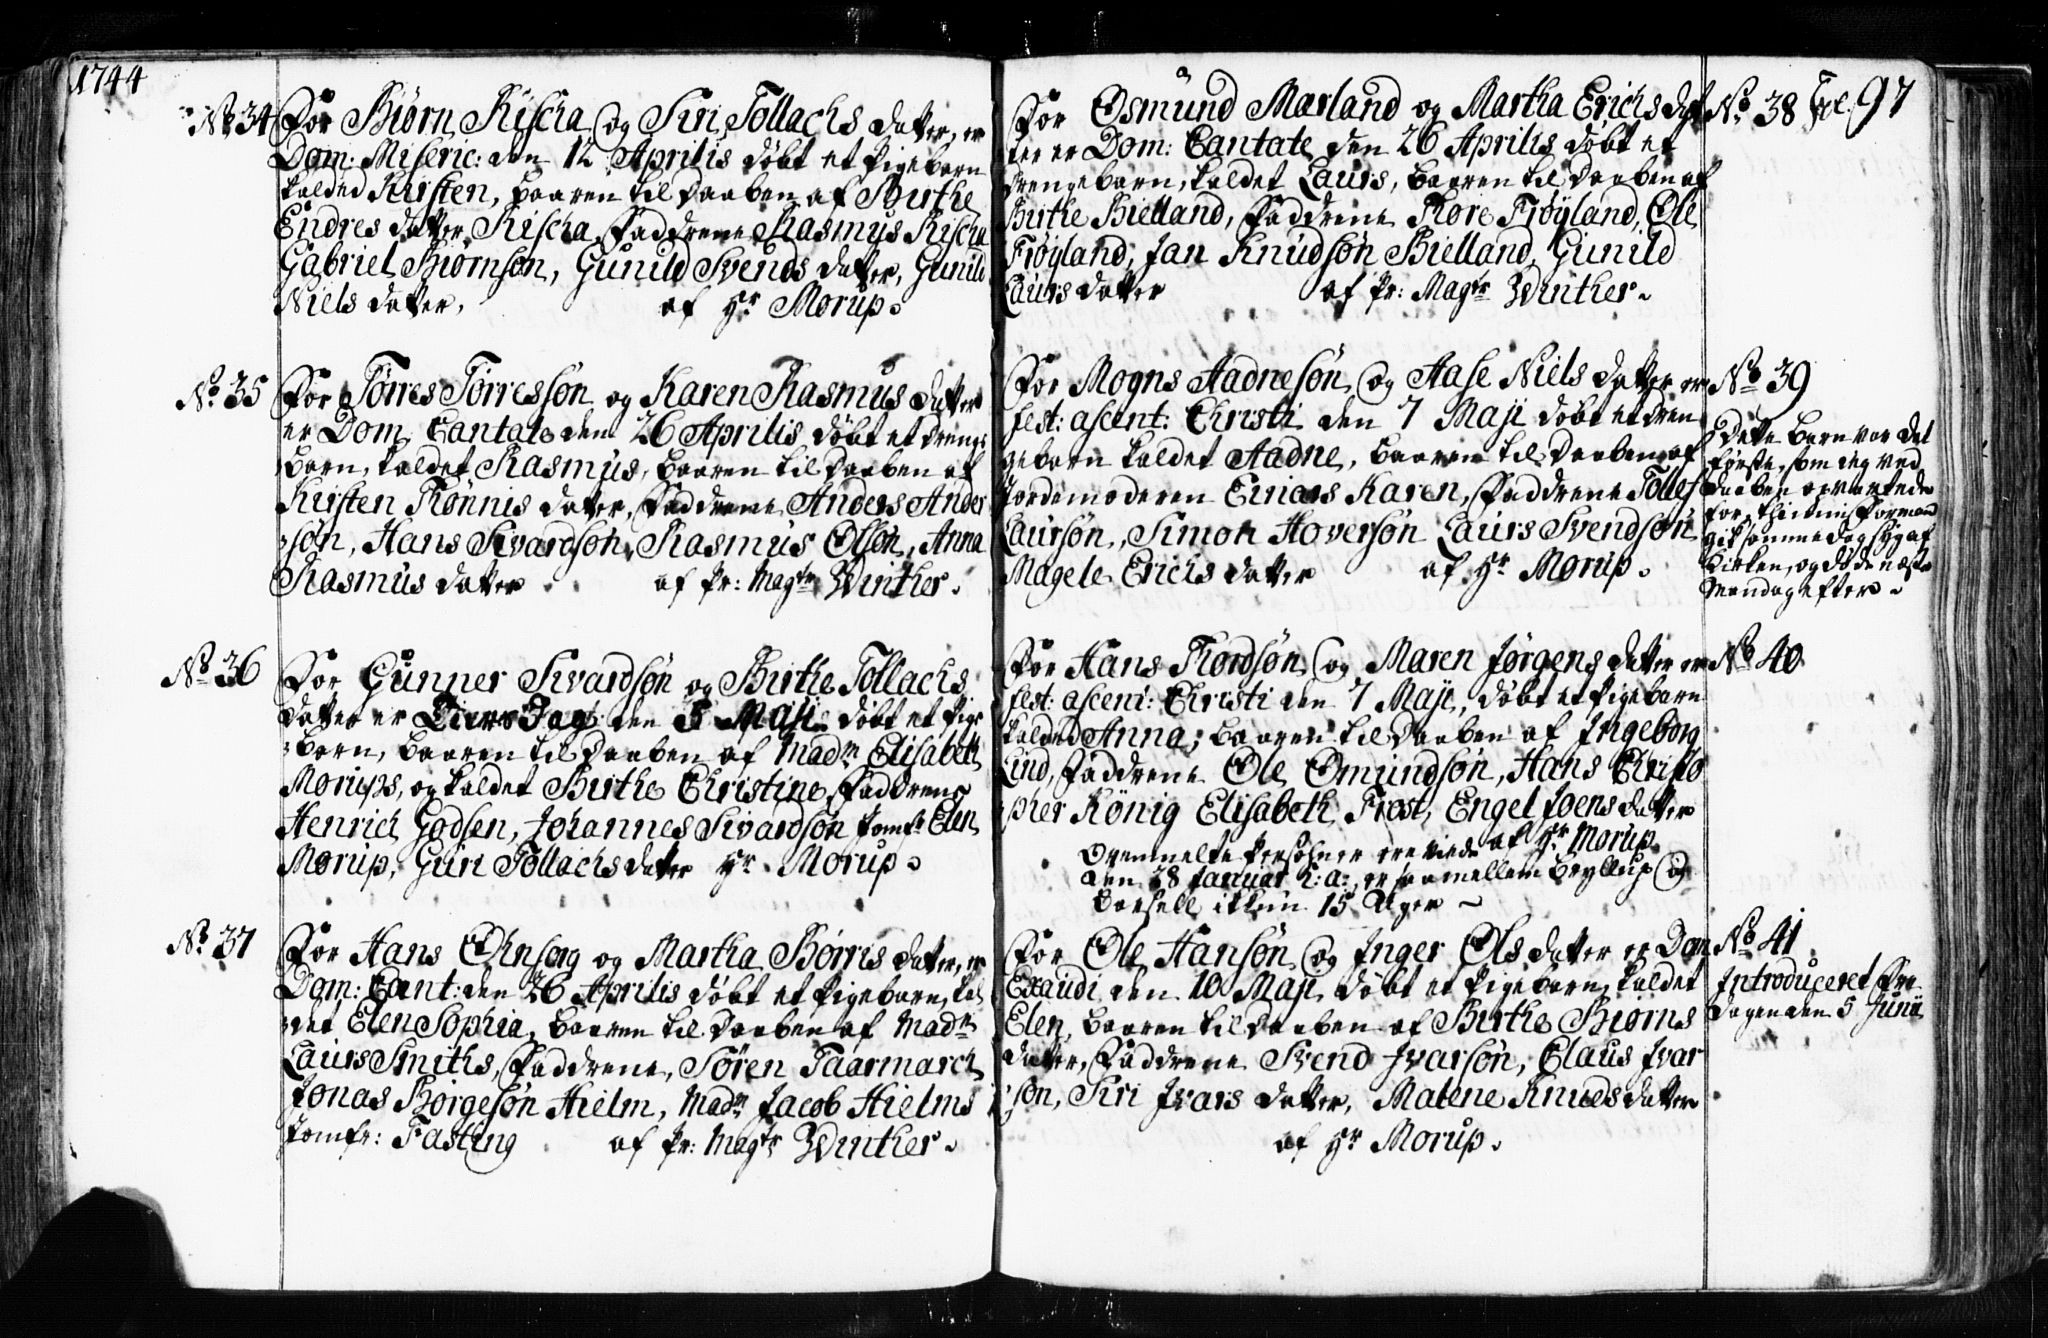 1744
No 34 For Biørn Rischa og Siri Tollachs datter, er
Dom: Miseric: den 12 Aprilis døbt et Pigebarn
kalded Kirsten, baaren til Daaben af Birthe
Endres datter Rischa, Faddrene Rasmus Rischa
Gabriel Biørnsøn, Gunild Svends datter, Gunild
Niels datter, af Hr Morup.
No 35 For Tørres Tørressøn og Karen Rasmus datter
er Dom. Cantate den 26 Aprilis døbt et drenge
barn, kaldet Rasmus, baaren til Daaben af
Kirsten Tønnis datter, Faddrene Anders Ander
søn, Hans Sivardsøn, Rasmus Olsøn, Anna
Rasmus datter af Pr: Magtr Winther.
No 36 For Gunner Sivardsøn og Birthe Tollachs
datter er Tiers Dag den 5 Maji døbt et Pige
barn, baaren til Daaben af Madm Elisabeth
Morups, og kaldet Birthe Christine, Faddrene
Henrich Godsen, Johannes Sivardsøn Jomfr Elen
Morup, Guri Tollachs datter Hr Morup.
No 37 For Hans Ohnsorg og Martha Børris datter, er
Dom: Cant: den 26 Aprilis døbt et Pigebarn, kal
det Elen Sophia, baaren til Daaben af Madm
Laurs Smiths, Faddrene, Søren Taarmarch
Jonas Børgesøn Hielm, Madm Jacob Hielms
Jomfr: Fasting af Pr: Magtr Winther.
For Osmund Marland og Martha Erichs dat No 38 Fol 97
ter er Dom: Cantate den 26 Aprilis døbt et
drengebarn, kaldet Laurs, baaren til Daaben af
Birthe Bielland, Faddrene Tore Frøyland, Ole
Frøyland, Jan Knudsøn Bielland, Gunild
Laurs datter af Pr: Magtr Winther.
For Mogns Aadnesøn og Aase Niels datter er No 39
fest: ascent: Christi den 7 Maji døbt et dren
gebarn kaldet Aadne, baaren til Daaben af
Jordemoderen Einars Karen, Faddrene Tollef
Laursøn, Simon Hoversøn Laurs Svendsøn
Magele Erichs datter af Hr Morup.
Dette barn var det
første, som jeg ved
Daaben opvartede
for, thi min Formand
gik samme dag syg af
Kirken, og døde næste
Mandag efter.
For Hans Thordsøn og Maren Jørgens datter er No 40
fest: ascent: Christi den 7 Maji, døbt et Pigebarn
kalded Anna, baaren til Daaben af Ingeborg
Lind, Faddrene Ole Omundsøn, Hans Christo
pher König Elisabeth Frost, Engel Joens datter
Ovenmelte Persohner ere viede af Hr Morup
den 28 Januar h: a:, er saa mellem Bryllup og
Barsell ikkun 15 Uger
For Ole Hansøn og Inger Ols datter er Dom No 41
Exaudi den 10 Maji døbt et Pigebarn, kaldet
Elen, baaren til Daaben af Birthe Biørns
datter, Faddrene Svend Ivarsøn, Claus Ivar
søn, Siri Ivars datter, Malene Knuds datter
af Hr Morup.
Introduceret Fre
dagen den 5 Junii